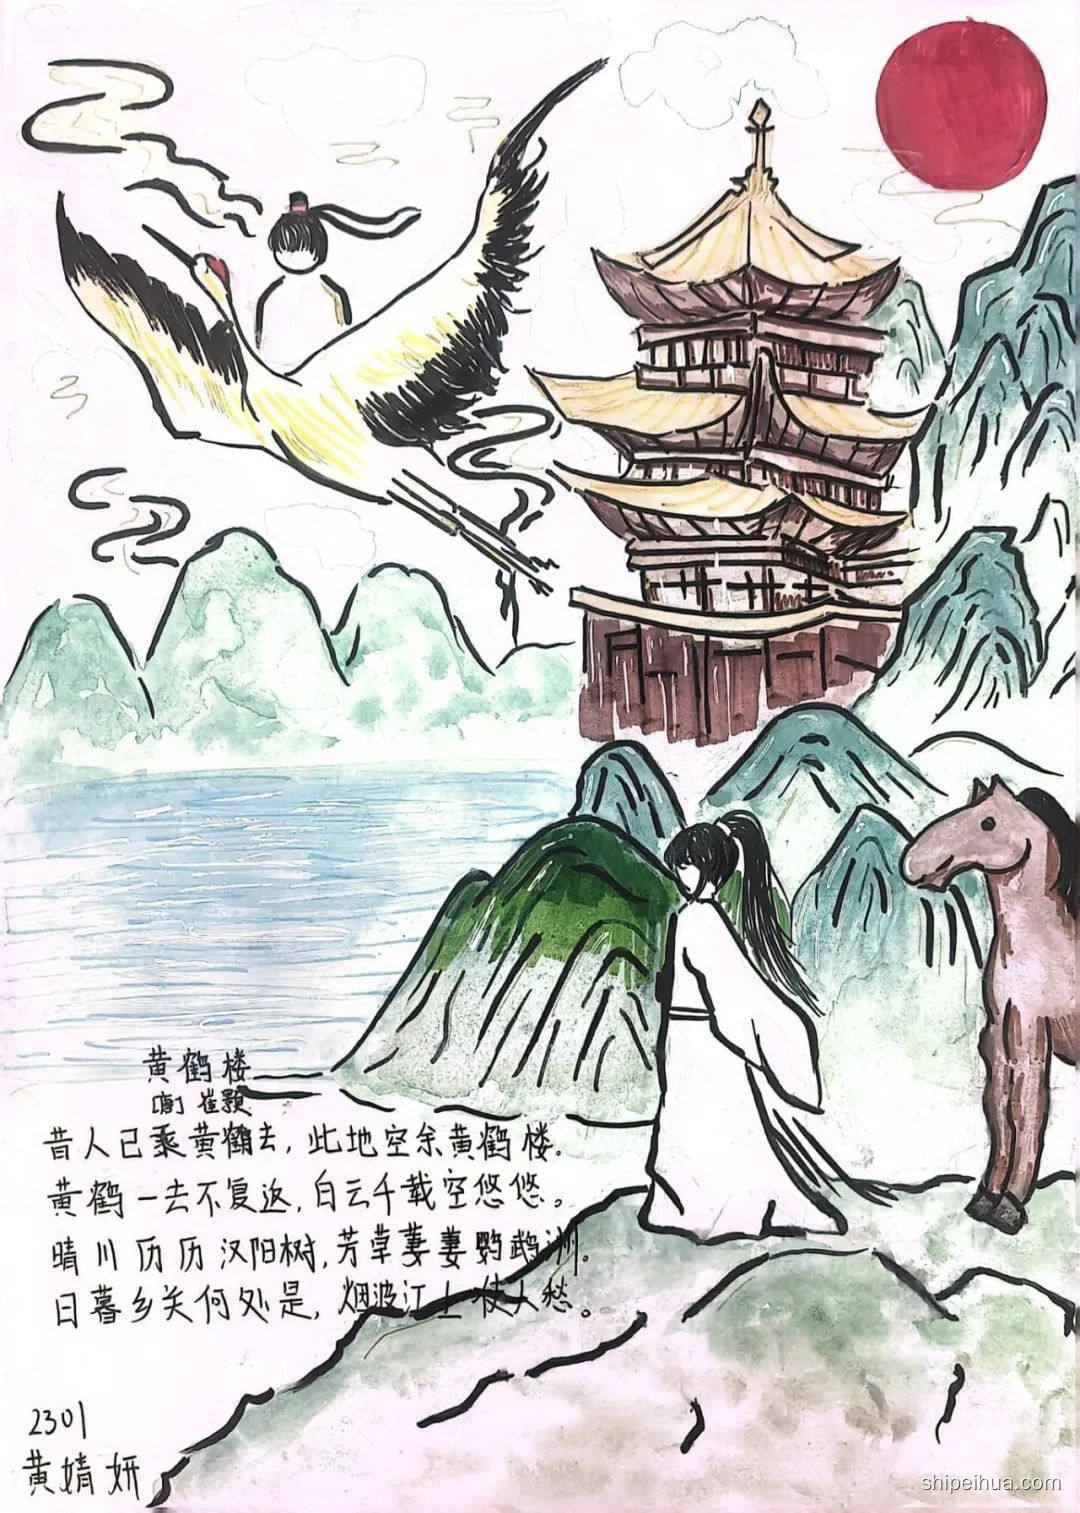 黄鹤楼
[唐] 崔颢
昔人已乘黄鹤去，此地空余黄鹤楼。
黄鹤一去不复返，白云千载空悠悠。
晴川历历汉阳树，芳草萋萋鹦鹉洲。
日暮乡关何处是，烟波江上使人愁。
2301
黄婧妍
shipeihua.com